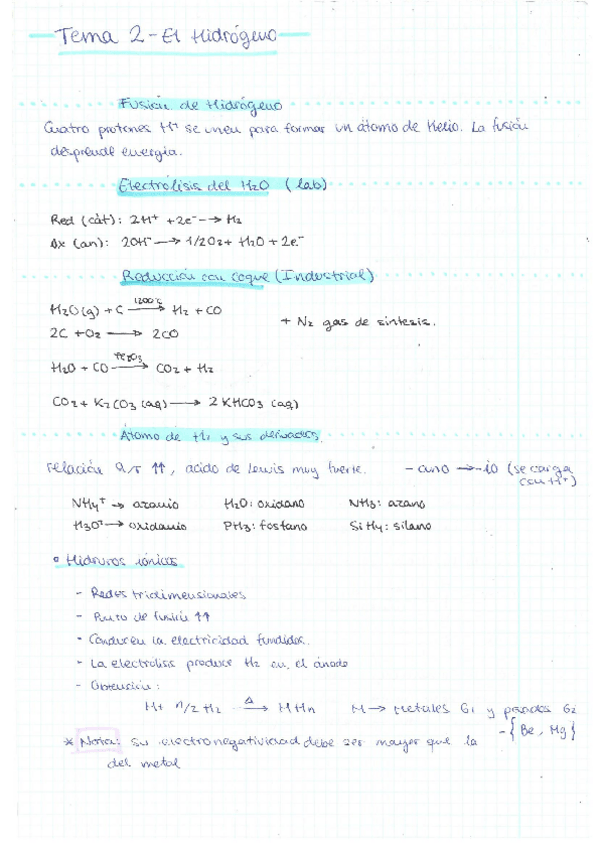 Tema 2 - El Hidrógeno
Fusión de Hidrógeno
Cuatro protones H⁺ se unen para formar un átomo de Helio. La fusión
desprende energía.
Electrólisis del H₂O (lab)
Red (cát): 2H⁺ + 2e⁻ → H₂
Ox (an): 2OH⁻ → 1/2O₂ + H₂O + 2e⁻
Reducción con coque (Industrial)
H₂O(g) + C —1200°C→ H₂ + CO
2C + O₂ → 2CO
+ N₂ gas de síntesis.
H₂O + CO —Fe₂O₃→ CO₂ + H₂
CO₂ + K₂CO₃ (aq) → 2 KHCO₃ (aq)
Átomo de H₁ y sus derivados
relación q/r ↑↑, acido de Lewis muy fuerte. - ano → -io (se carga
con H⁺)
NH₄⁺ → azanio H₂O: oxidano NH₃: azano
H₃O⁺ → oxidanio PH₃: fosfano SiH₄: silano
• Hidruros iónicos
- Redes tridimensionales
- Punto de fusión ↑↑
- Conducen la electricidad fundidos.
- La electrólisis produce H₂ en el ánodo
- Obtención:
M + n/2 H₂ —Δ→ MHn M → Metales G₁ y pesados G₂
- {Be, Mg}
* Nota: su electronegatividad debe ser mayor que la
del metal